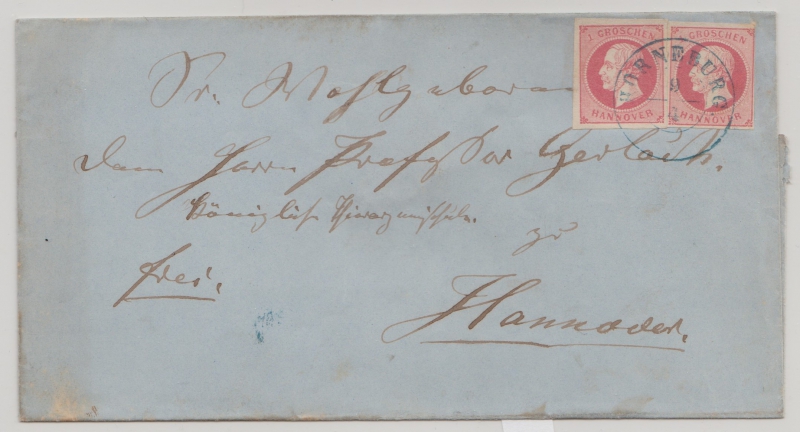 1 GROSCHEN
HANNOVER
1 GROSCHEN
HANNOVER
HORNEBURG
9
Sr. Wohlgeboren
dem Herrn Professor Gerlach.
Königliche Thierarzneischule.
zu
frei.
Hannover.